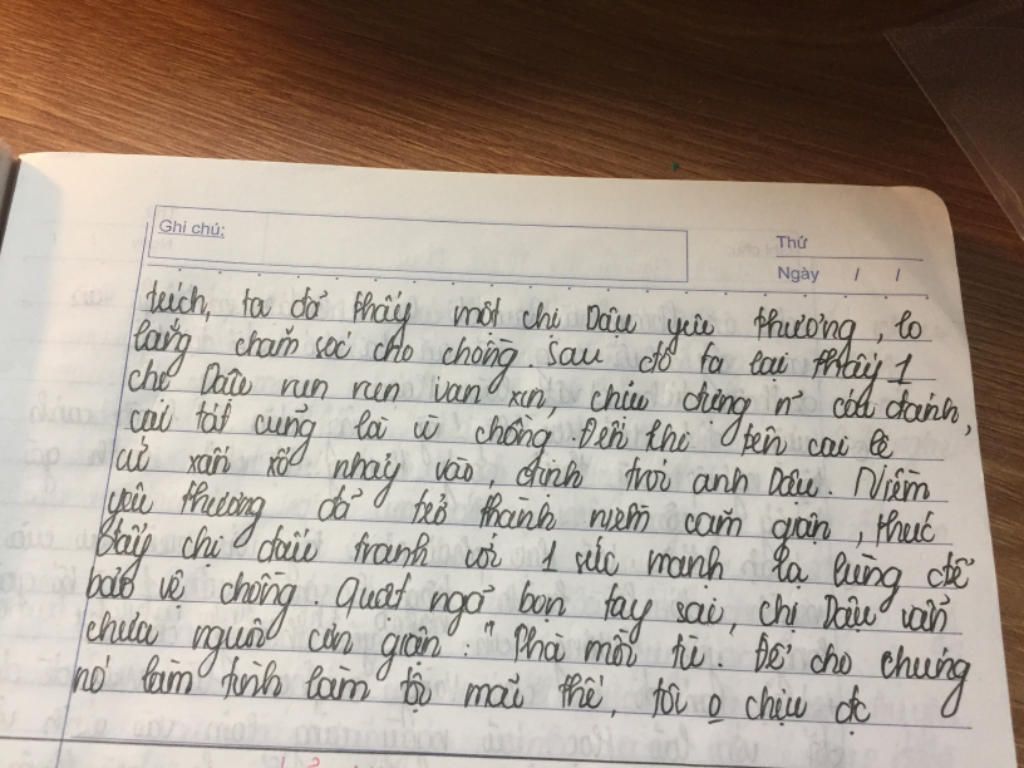 Ghi chú:
Thứ
Ngày / /
trích, ta đã thấy một chị Dậu yêu thương, lo
lắng chăm sóc cho chồng. Sau đó ta lại thấy 1
chị Dậu run run van xin, chịu đựng n~ cái đánh,
cái tát cũng là vì chồng. Đến khi tên cai lệ
cứ xấn xổ nhảy vào, định trói anh Dậu. Niềm
yêu thương đã trở thành niềm căm giận, thúc
đẩy chị đấu tranh với 1 sức mạnh lạ lùng để
bảo vệ chồng. Quật ngã bọn tay sai, chị Dậu vẫn
chưa nguôi cơn giận: "Thà ngồi tù. Để cho chúng
nó làm tình làm tội mãi thế, tôi o chịu đc